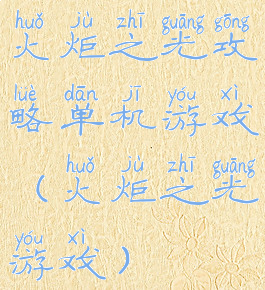 huǒ jù zhī guāng gōng
火炬之光攻
lüè dān jī yóu xì
略单机游戏
huǒ jù zhī guāng
(火炬之光
yóu xì
游戏)